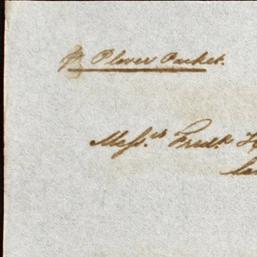 ℘ Plover Packet.
Mess.rs Fredk H